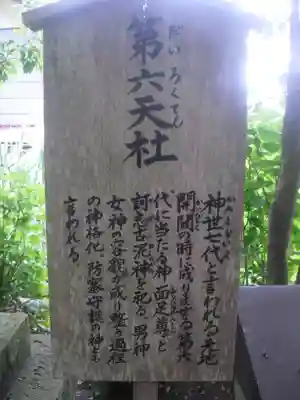 第六天社
だいろくてん
神世七代と言われる天地
開闢の時に成りませる第六
代に当たる神 面足尊と
訶志古泥神を祀る。男神
女神の容貌が成り整う過程
の神格化。防塞守護の神とも
言われる。